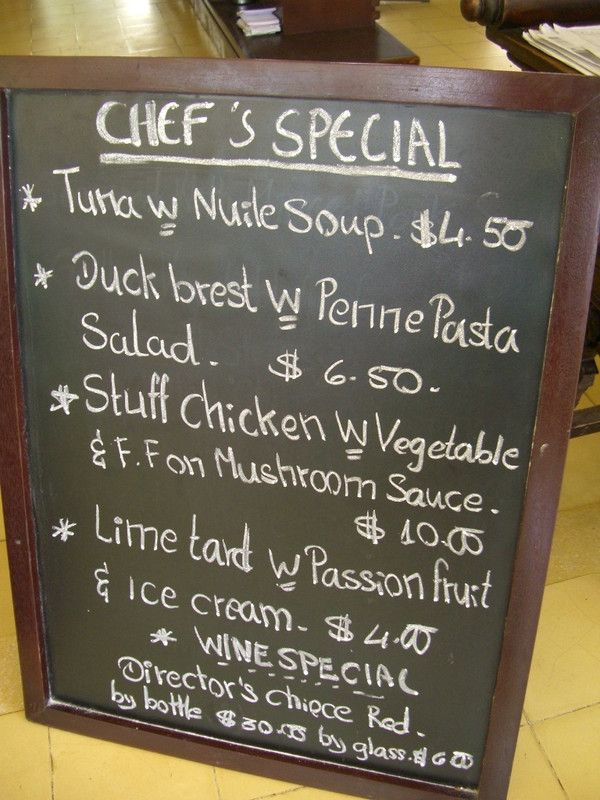 CHEF'S SPECIAL
* Tuna w Nuile Soup. $4.50
* Duck brest w Penne Pasta
Salad. $ 6.50.
* Stuff Chicken w Vegetable
& F.F on Mushroom Sauce.
$ 10.00
* Lime tard w Passion fruit
& Ice cream. $ 4.00
* WINE SPECIAL
Director's Chiece Red.
by bottle $30.00 by glass. $6.00